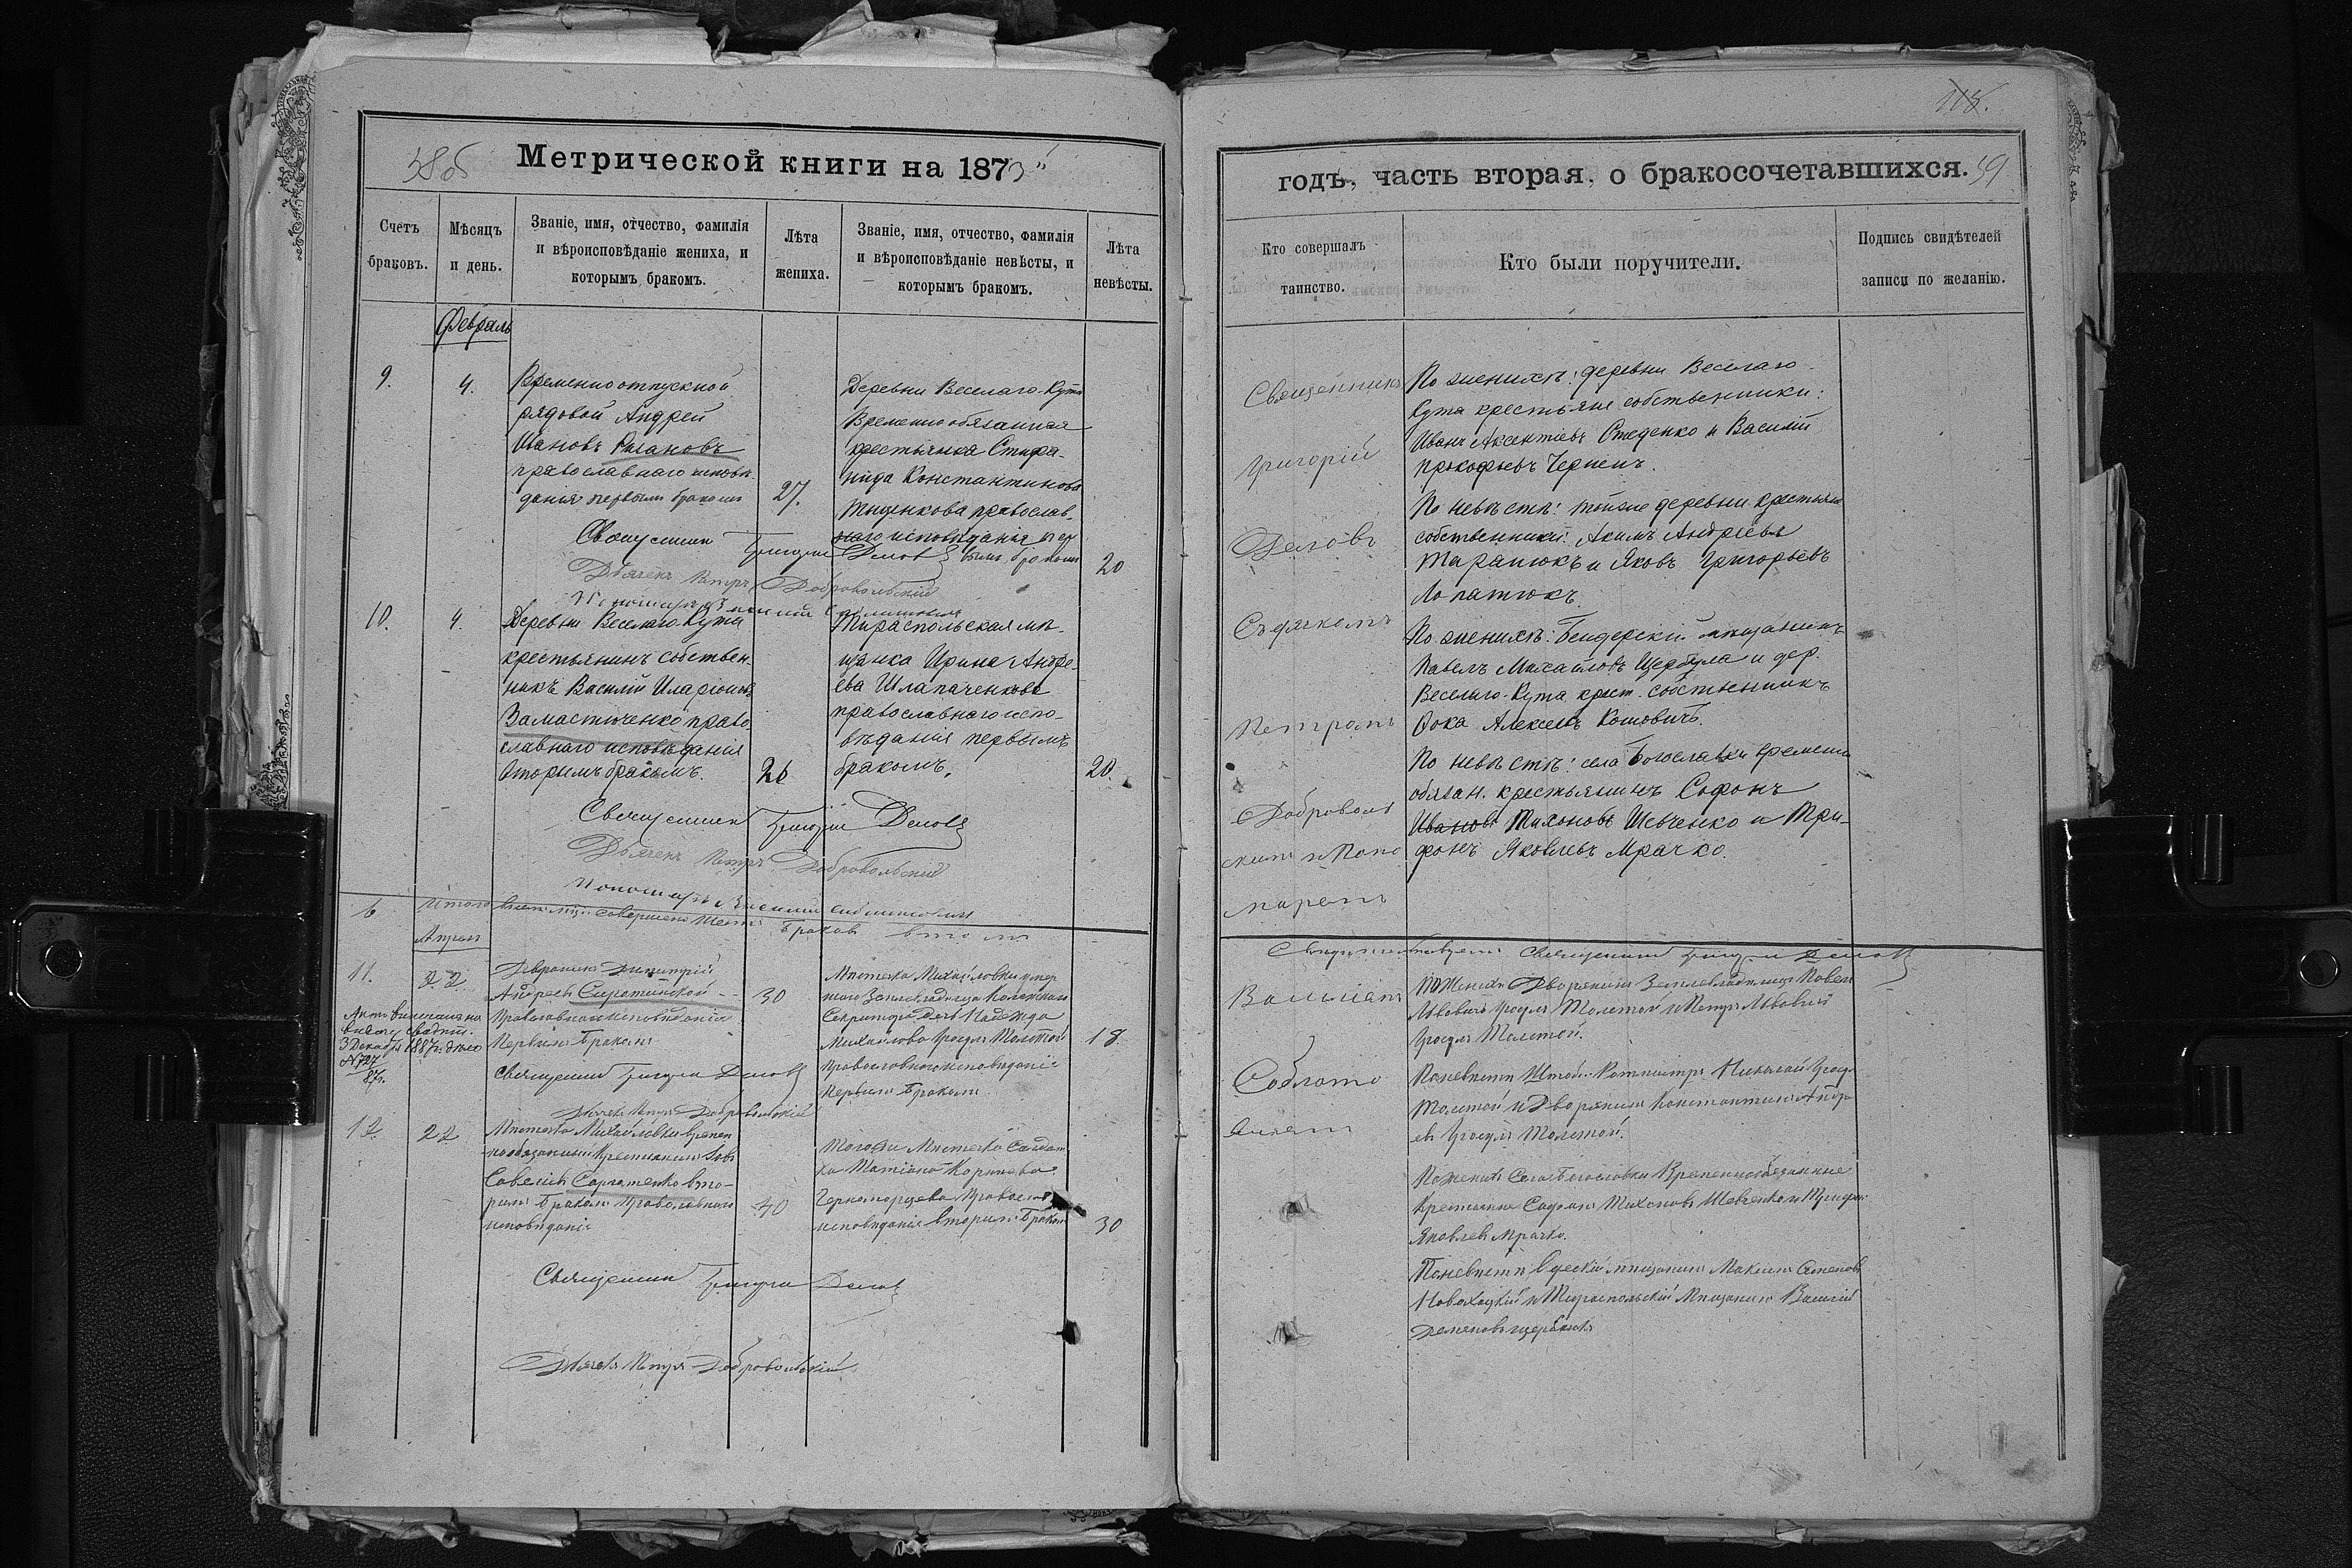 38об
Метрической книги на 1873й
Счетъ браковъ.
Мѣсяцъ и день.
Званіе, имя, отчество, фамилія и вѣроисповѣданіе жениха, и которымъ бракомъ.
Лѣта жениха.
Званіе, имя, отчество, фамилія и вѣроисповѣданіе невѣсты, и которымъ бракомъ.
Лѣта невѣсты.
Февраль
9.
4.
Временноотпускной
рядовой Андрей
Ивановъ
православнаго исповѣ-
данія первымъ бракомъ
27.
Деревни Веселаго-Кута
Временно обязанная
крестьянка Стефа-
нида Константинова
православ-
наго исповѣданія пер
вымъ бракомъ
20
Священникъ Григорій Деловъ
Дьячекъ Петръ Добровольскій
Пономарь
10.
4.
Деревни Веселаго-Кута
крестьянинъ собствен-
никъ Василій Иларіоновъ
Замастюченко право-
славнаго исповѣданія
вторымъ бракомъ.
26
Тираспольская мѣ-
щанка Ирина Андре-
ева Шлапаченкова
православнаго испо-
вѣданія первымъ
бракомъ.
20.
Священникъ Григорій Деловъ
Дьячекъ Петръ Добровольскій
Пономарь
6
Итого совершено шесть браковъ
Апрель
11.
22
Дворянинъ Димитрій
Андреевъ Сиротинской
Православнаго исповѣданія
Первымъ Бракомъ
30
Мѣстечка Михайловки умер
шаго Землевладельца
Секретаря дочь Надежда
Михайлова Толстой
Православного исповѣданія
Первымъ Бракомъ
18
3 Декабря 1887 г.
87г.
Священникъ Григорій Деловъ
Дьячекъ Петръ Добровольскій
12
22
Мѣстечка Михайловки времен
нообязанный Крестьянинъ
Савельевъ вто-
рымъ Бракомъ Православного
исповѣданія
40
Того же Мѣстечка Солдат
ка Татіана
Черноморцева Православ.
исповѣданія вторымъ Бракомъ
30
Священникъ Григорій Деловъ
Дьячекъ Петръ Добровольскій
118.
годъ, часть вторая, о бракосочетавшихся. 39
Кто совершалъ таинство.
Кто были поручители.
Подпись свидѣтелей записи по желанію.
Священникъ
Григорій
Деловъ
Съ дячкомъ
Петромъ
Доброволь
скимъ и Поно
маремъ
По женихѣ: деревни Веселаго-
Кута крестьяне собственники:
Иванъ Аксентіевъ Стеценко и Василій
Прокофьевъ Черненъ.
По невѣстѣ: тойже деревни крестьяне
собственники: Акимъ Андріевъ
Таранюкъ и Яковъ Григорьевъ
Лопатюкъ.
По женихѣ: Бендерскій мѣщанинъ
Павелъ Михайловъ Щербула и дер.
Веселаго-Кута крест. собственникъ
Фока Алексеевъ Кошовичъ.
По невѣстѣ: села Богославки временно
обязан. крестьянинъ Софонъ
Ивановъ Тихоновъ Шевченко и Три-
фонъ Яковлевъ Мрачко.
Священникъ Григорій Деловъ
По Женихѣ Дворянинъ Землевладѣлецъ Павелъ
Львовичъ Толстой и Петръ Львовичъ
Толстой.
По невѣстѣ Штабс-Ротмистръ Николай
Толстой и Дворянинъ Константинъ Андре
евъ Толстой.
По женихѣ Села Богословки Временнообязанные
Крестьяне Софонъ Тихоновъ Шевченко и Трифонъ
Яковлевъ Мрачко.
По невѣстѣ Одескій мѣщанинъ Максимъ Семеновъ
Новохацкій и Тираспольскій Мѣщанинъ Василій